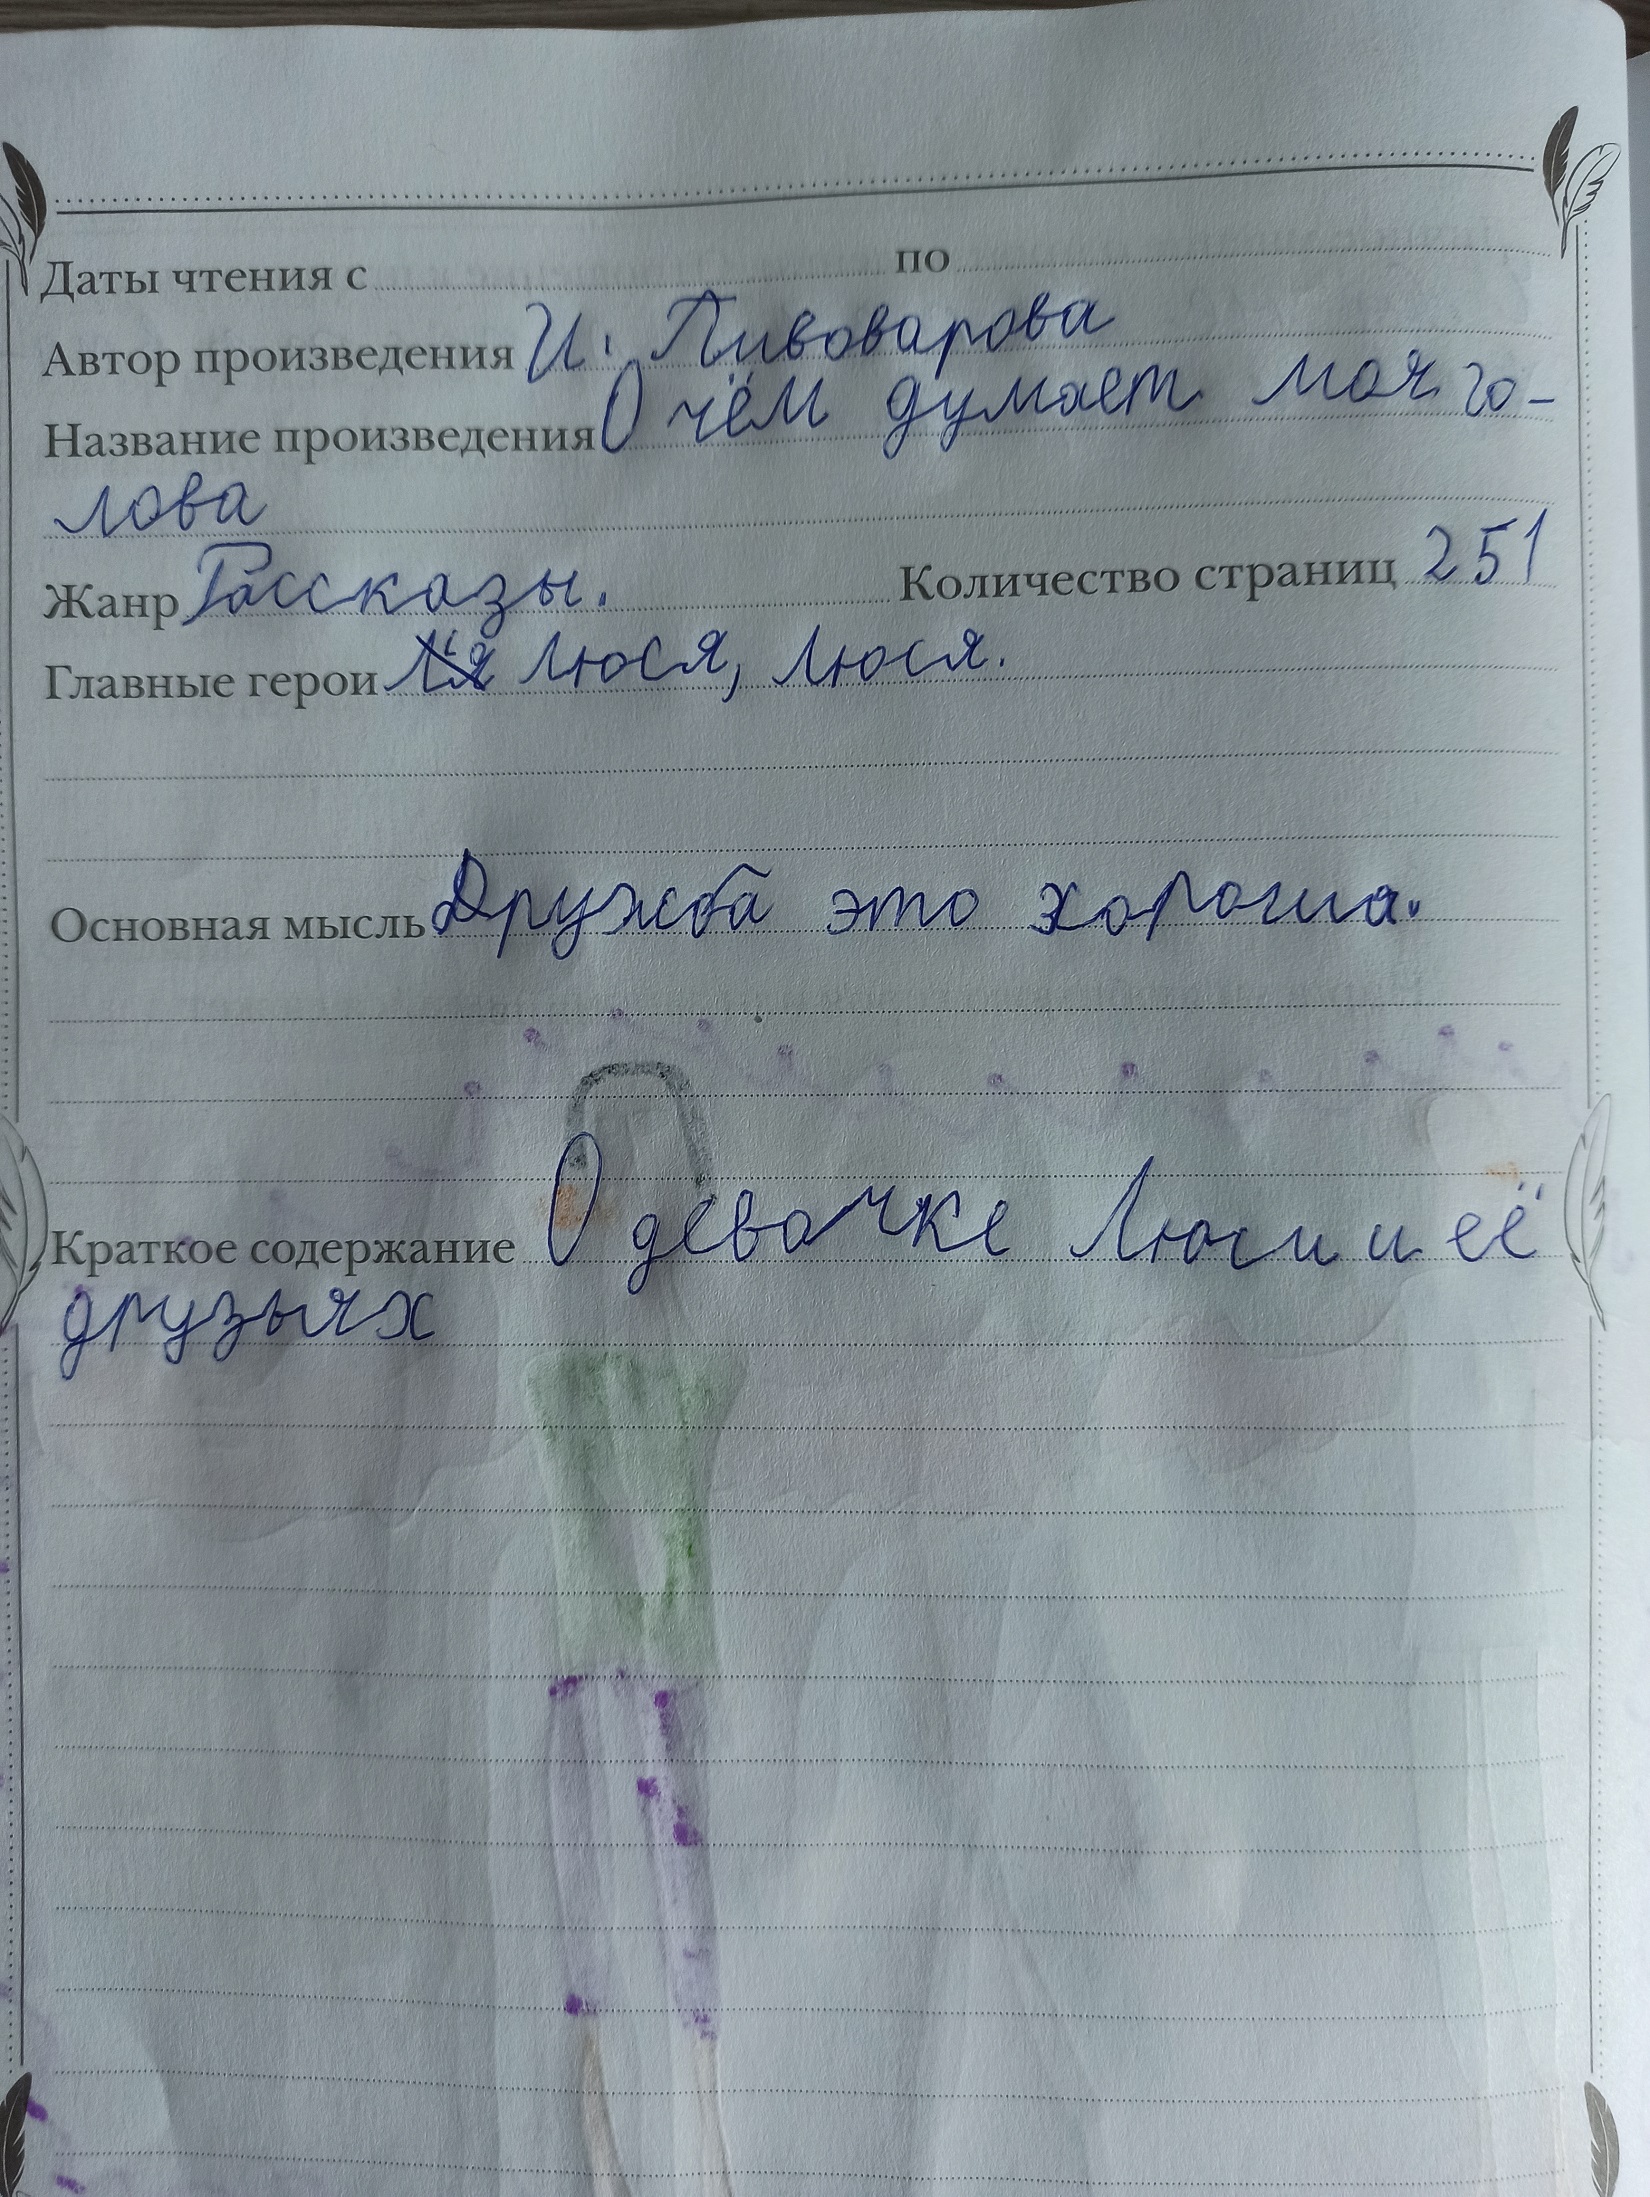 Даты чтения с по
Автор произведения И. Пивоварова
Название произведения О чём думает моя го-
лова
Жанр Рассказы. Количество страниц 251
Главные герои Люся, Люся.
Основная мысль Дружба это хороша.
Краткое содержание О девочке Люси и её
друзьях